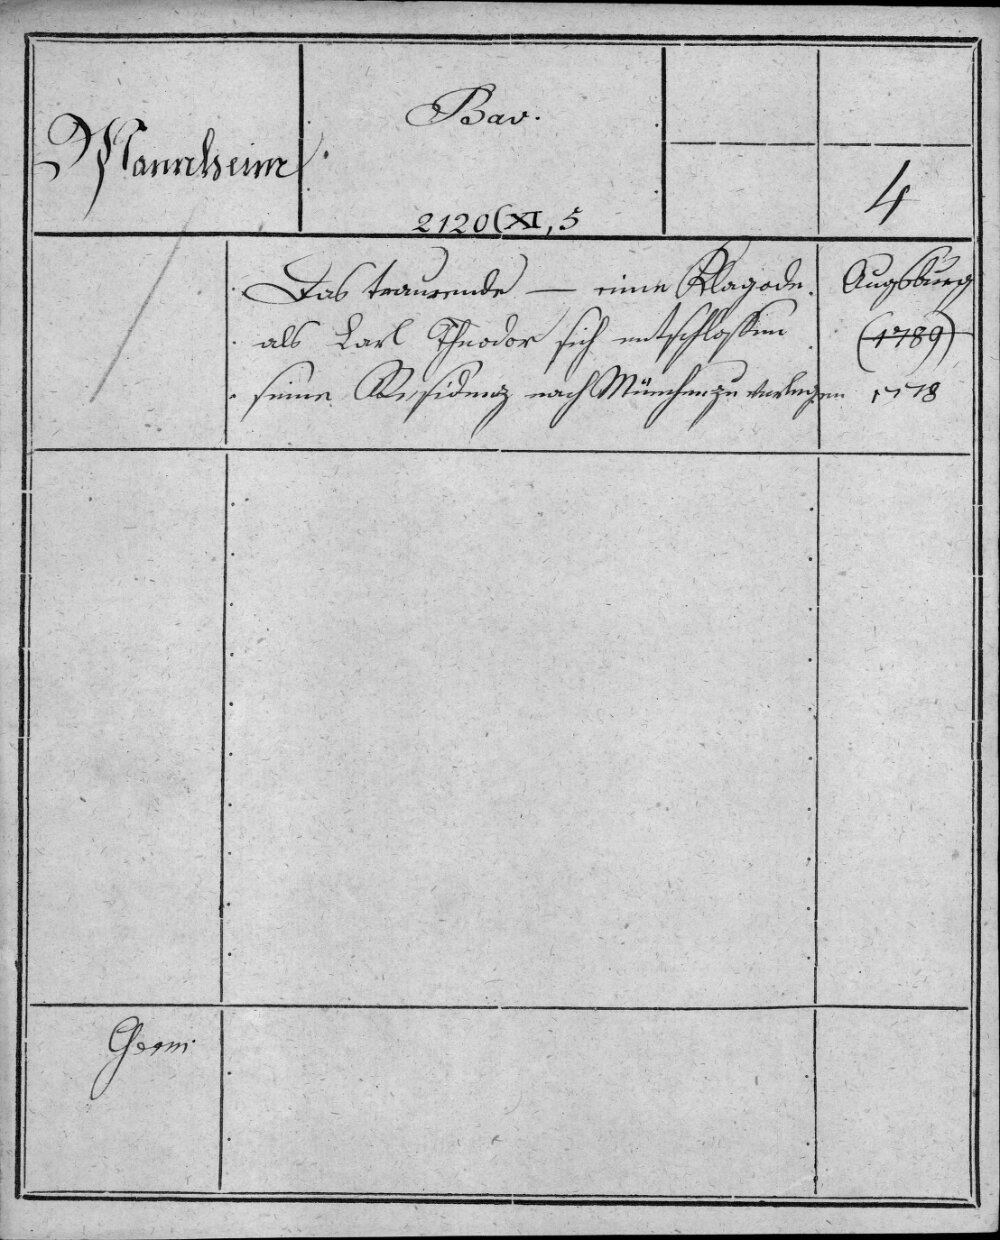 Mannheim.
Bav.
2120(XI,5
4
Das traurende — eine Klagode.
als Karl Theodor sich entschlossen
seine Residenz nach München zu verlegen
Augsburg
(1789)
1778
Germ.